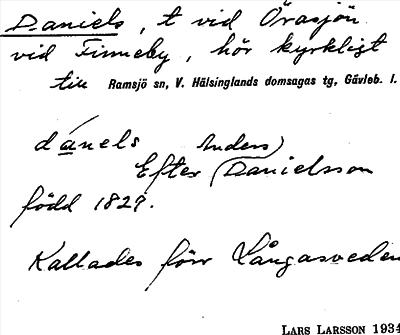 Daniels, t vid Örasjön
vid Finneby, hör kyrkligt
till Ramsjö sn, V. Hälsinglands domsagas tg, Gävleb. l.
dánels Anders)
Efter (Danielsson
född 1829.
Kallades förr Långasveden
LARS LARSSON 1934